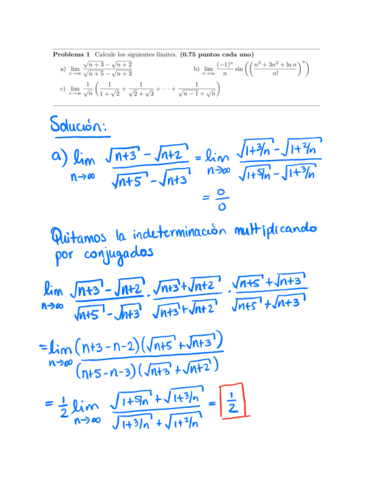 Problema 1 Calcule los siguientes límites. (0.75 puntos cada uno)
a) lim_{n→∞} (√(n+3) − √(n+2)) / (√(n+5) − √(n+3))
b) lim_{n→∞} ((−1)^n / n) sin(((n³ + 3n² + ln n) / n!)^n)
c) lim_{n→∞} (1/√n) (1/(1+√2) + 1/(√2+√3) + ··· + 1/(√(n−1)+√n))
Solución:
a) lim_{n→∞} (√(n+3) − √(n+2)) / (√(n+5) − √(n+3)) = lim_{n→∞} (√(1+3/n) − √(1+2/n)) / (√(1+5/n) − √(1+3/n))
= 0/0
Quitamos la indeterminación multiplicando
por conjugados
lim_{n→∞} (√(n+3) − √(n+2)) / (√(n+5) − √(n+3)) · (√(n+3) + √(n+2)) / (√(n+3) + √(n+2)) · (√(n+5) + √(n+3)) / (√(n+5) + √(n+3))
= lim_{n→∞} (n+3−n−2)(√(n+5) + √(n+3)) / (n+5−n−3)(√(n+3) + √(n+2))
= 1/2 lim_{n→∞} (√(1+5/n) + √(1+3/n)) / (√(1+3/n) + √(1+2/n)) = 1/2